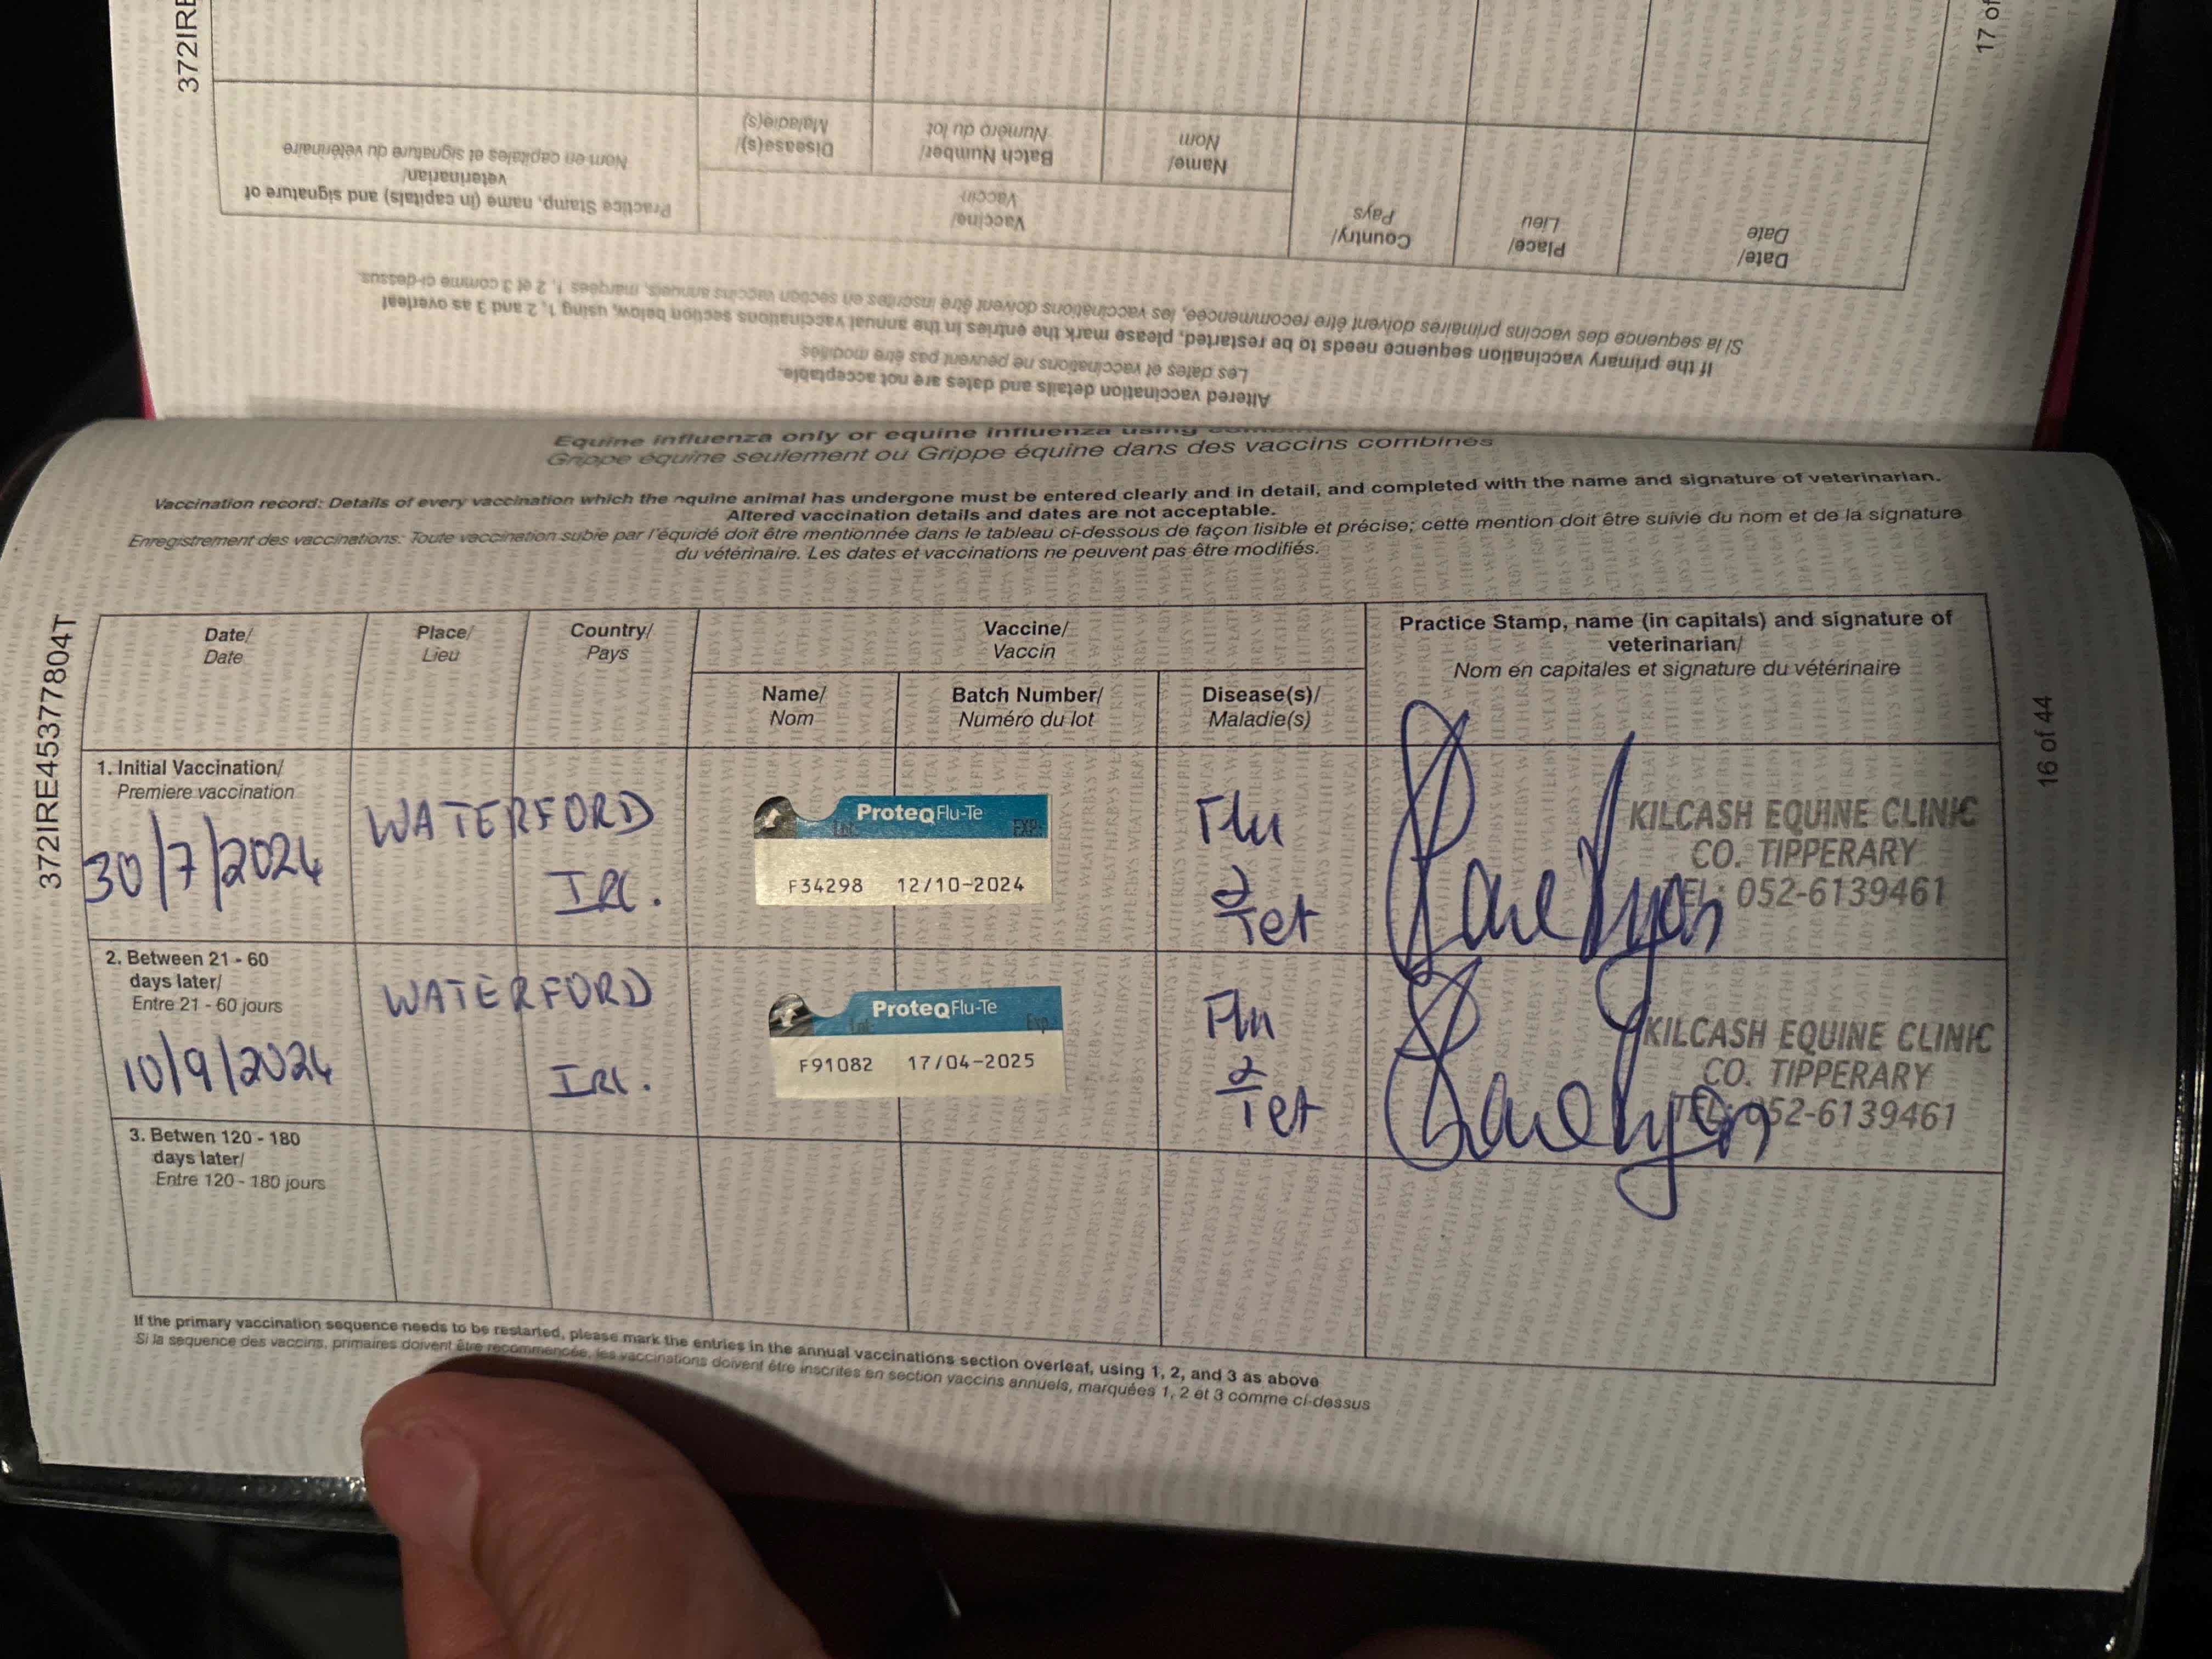 372IRE
17 of
Practice Stamp, name (in capitals) and signature of
veterinarian/
Nom en capitales et signature du vétérinaire
Vaccine/
Vaccin
Disease(s)/
Maladie(s)
Batch Number/
Numéro du lot
Name/
Nom
Country/
Pays
Place/
Lieu
Date/
Date
If the primary vaccination sequence needs to be restarted, please mark the entries in the annual vaccinations section below, using 1, 2 and 3 as overleaf
Si la sequence des vaccins primaires doivent être recommencée, les vaccinations doivent être inscrites en section vaccins annuels, marquées 1, 2 et 3 comme ci-dessus
Altered vaccination details and dates are not acceptable.
Les dates et vaccinations ne peuvent pas être modifiés
Equine influenza only or equine influenza using
Grippe équine seulement ou Grippe équine dans des vaccins combinés
Vaccination record: Details of every vaccination which the equine animal has undergone must be entered clearly and in detail, and completed with the name and signature of veterinarian.
Altered vaccination details and dates are not acceptable.
Enregistrement des vaccinations: Toute vaccination subie par l'équidé doit être mentionnée dans le tableau ci-dessous de façon lisible et précise; cette mention doit être suivie du nom et de la signature
du vétérinaire. Les dates et vaccinations ne peuvent pas être modifiés.
372IRE45377804T
16 of 44
Date/
Date
Place/
Lieu
Country/
Pays
Vaccine/
Vaccin
Name/
Nom
Batch Number/
Numéro du lot
Disease(s)/
Maladie(s)
Practice Stamp, name (in capitals) and signature of
veterinarian/
Nom en capitales et signature du vétérinaire
1. Initial Vaccination/
Premiere vaccination
30/7/2024
WATERFORD
IRL.
ProteqFlu-Te
Lot: EXP:
F34298 12/10-2024
Flu
&
Tet
KILCASH EQUINE CLINIC
CO. TIPPERARY
TEL: 052-6139461
2. Between 21 - 60
days later/
Entre 21 - 60 jours
10/9/2024
WATERFORD
IRL.
ProteqFlu-Te
Lot: Exp:
F91082 17/04-2025
Flu
&
Tet
KILCASH EQUINE CLINIC
CO. TIPPERARY
TEL: 052-6139461
3. Betwen 120 - 180
days later/
Entre 120 - 180 jours
If the primary vaccination sequence needs to be restarted, please mark the entries in the annual vaccinations section overleaf, using 1, 2, and 3 as above
Si la sequence des vaccins, primaires doivent être recommencée, les vaccinations doivent être inscrites en section vaccins annuels, marquées 1, 2 et 3 comme ci-dessus